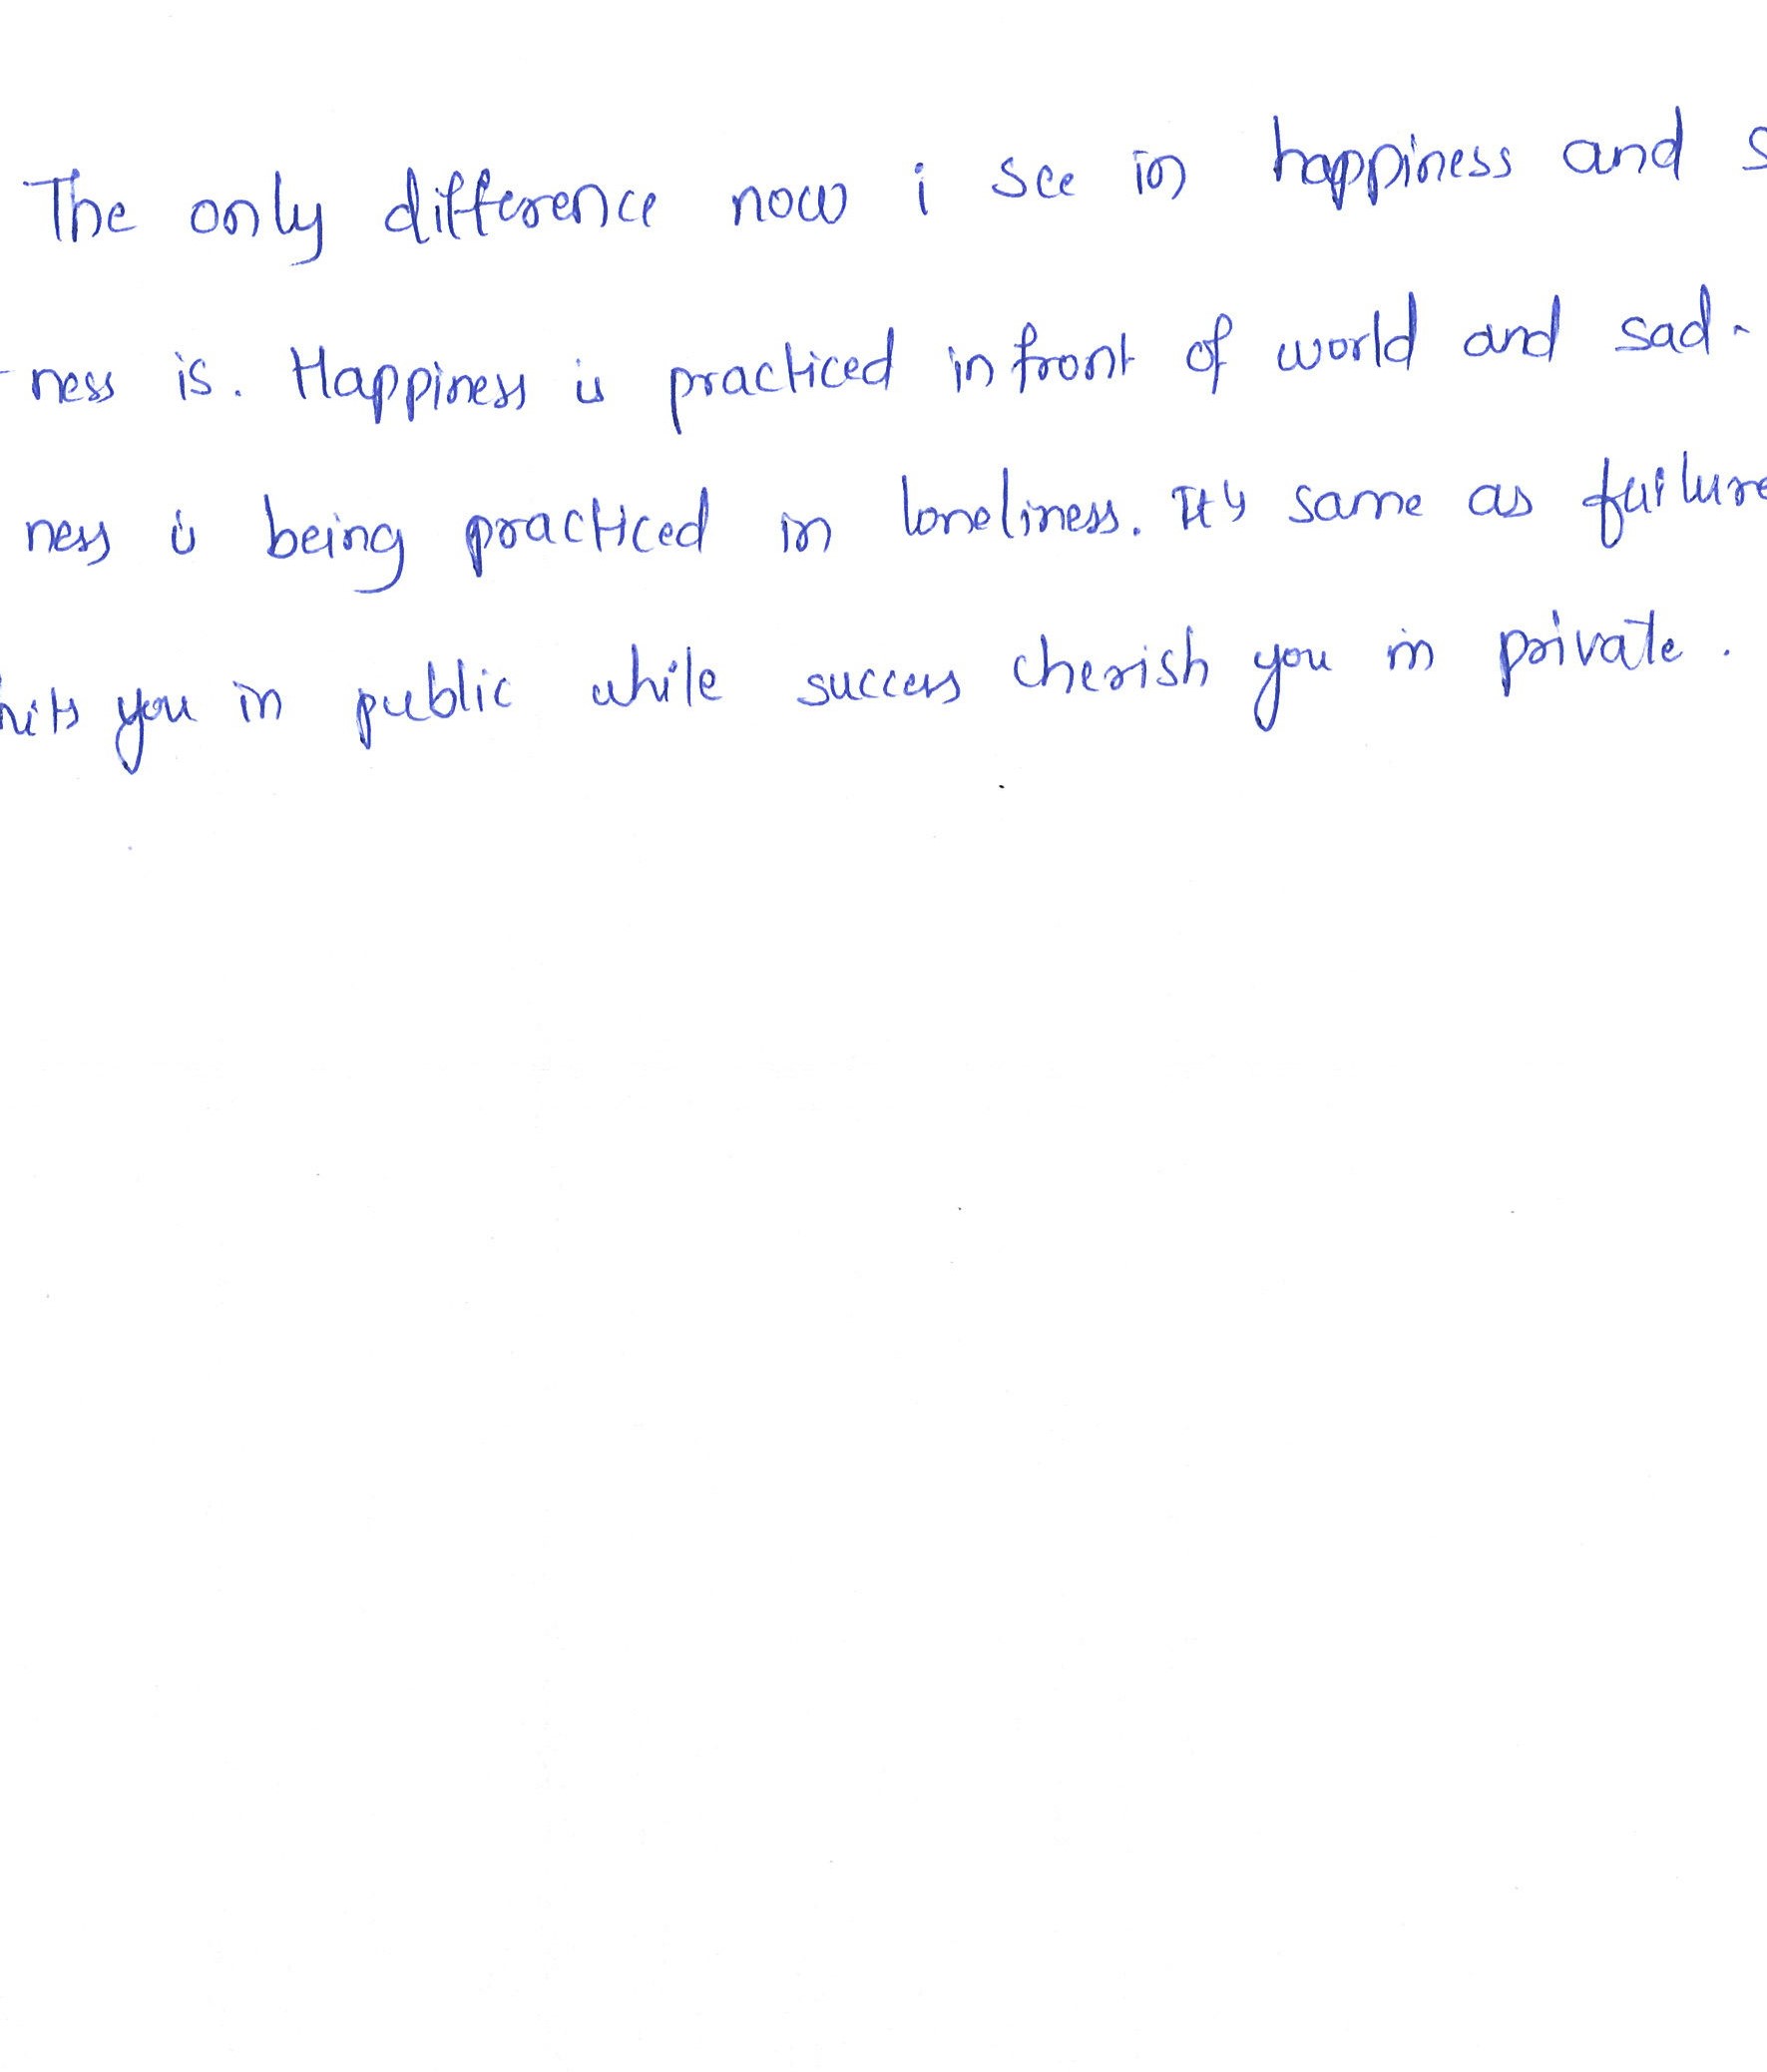 The only difference now i see in happiness and s
-ness is. Happiness is practiced infront of world and sad-
ness is being practiced in loneliness. It's same as failure
hits you in public while success cherish you in private.